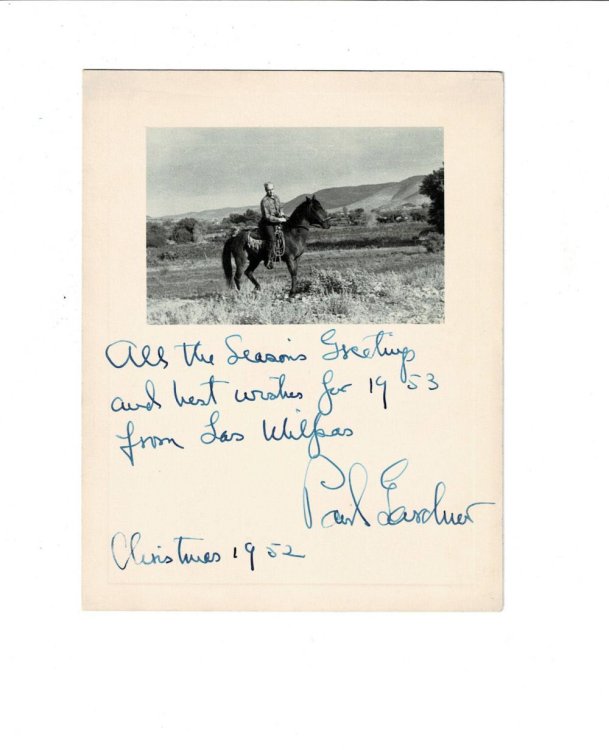 All the Season's Greetings
and best wishes for 1953
from Las Milpas
Paul Gardner
Christmas 1952